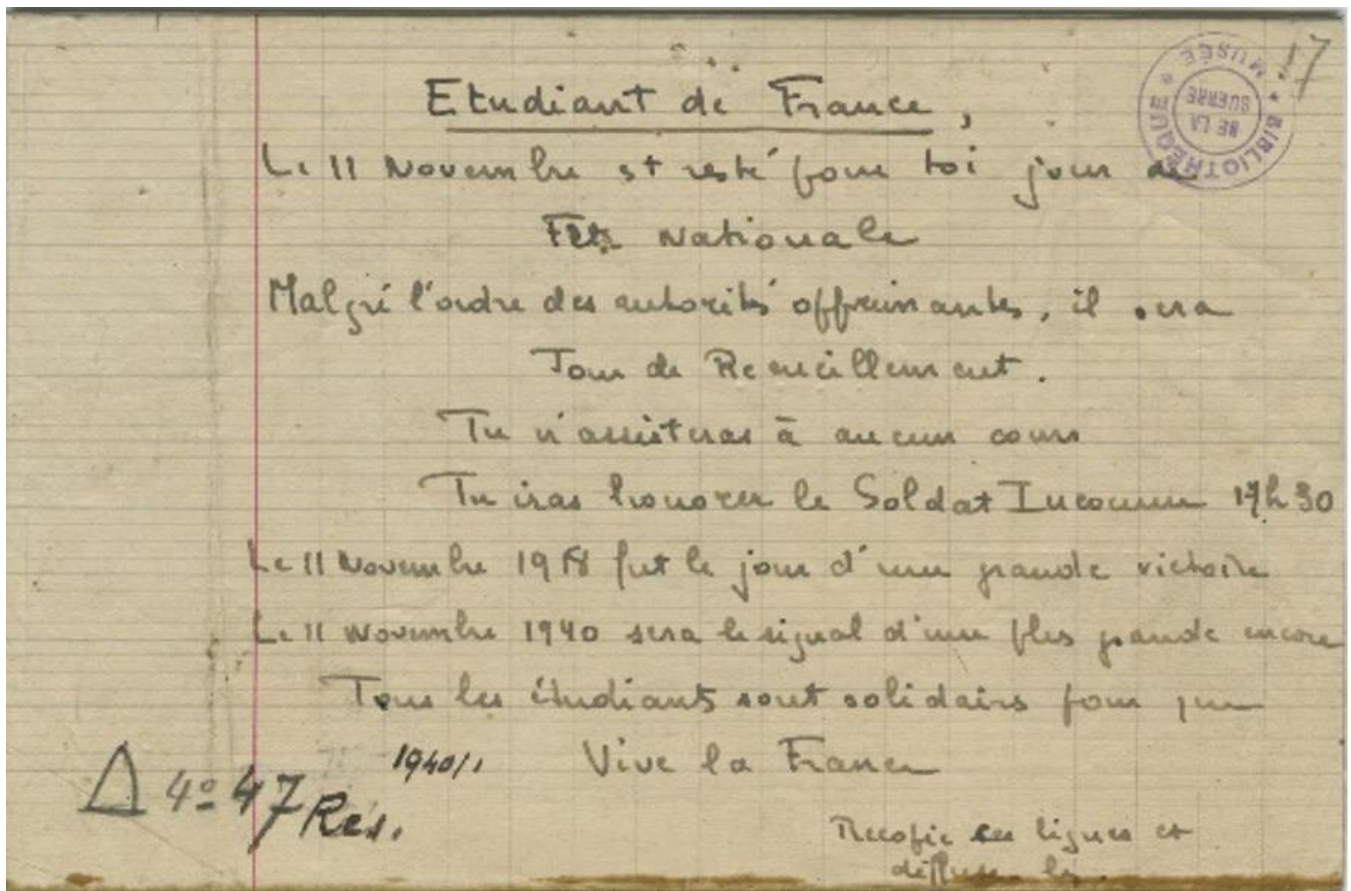 17
BIBLIOTHÈQUE * MUSÉE *
DE LA
GUERRE
Etudiant de France,
Le 11 Novembre est resté pour toi jour de
Fête Nationale
Malgré l'ordre des autorités opprimantes, il sera
Jour de Recueillement.
Tu n'assisteras à aucun cours
Tu iras honorer le Soldat Inconnu 17h30
Le 11 Novembre 1918 fut le jour d'une grande victoire
Le 11 Novembre 1940 sera le signal d'une plus grande encore
Tous les étudiants sont solidaires pour que
Vive la France
1940/1
Δ 4º 47 Rés.
Recopie ces lignes et
diffuse les